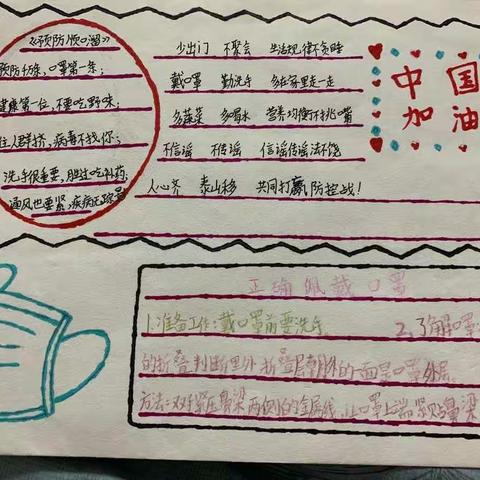 《预防顺口溜》
预防千万条，口罩第一条；
健康第一位，不要吃野味；
住人群挤，病毒不找你；
洗手很重要，胜过吃补药；
通风也要紧，疾病无踪影
少出门 不聚会 生活规律不贪睡
戴口罩 勤洗手 多在家里走一走
多蔬菜 多喝水 营养均衡不挑嘴
不信谣 不传谣 信谣传谣法不饶
人心齐 泰山移 共同打赢防控战！
中国
加油
正确佩戴口罩
1.准备工作：戴口罩前要洗手. 2.了解口罩
的折叠判断里外折叠层朝外的一面是口罩外层.
方法：双手紧压鼻梁两侧的金属线，让口罩上端紧贴鼻梁